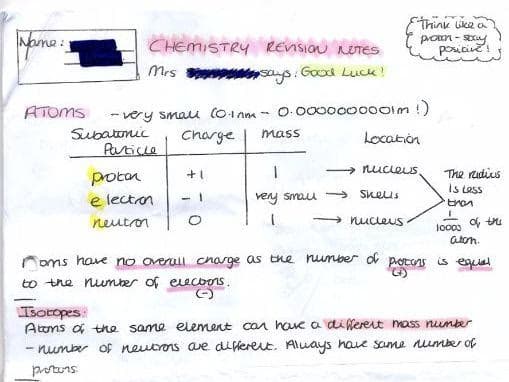 Name:
CHEMISTRY REVISION NOTES
Think like a
proton - stay
positive!
Mrs says: Good Luck!
ATOMS - very small (0.1nm - 0.0000000001m!)
Subatomic Particle | Charge | mass | Location
proton | +1 | 1 → nucleus
electron | - 1 | very small → Shells
neutron | 0 | 1 → nucleus
The radius
is less
than
1/10000 of the
atom.
Atoms have no overall charge as the number of protons (+) is equal
to the number of electrons. (-)
Isotopes:
Atoms of the same element can have a different mass number
- number of neutrons are different. Always have same number of
protons.